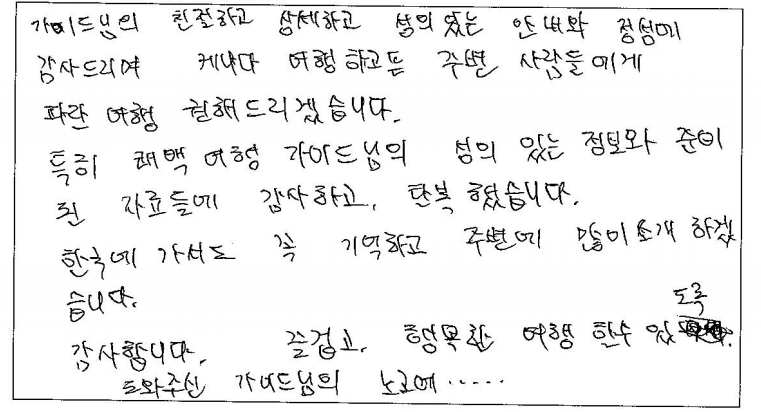 가이드님의 친절하고 상세하고 성의 있는 안내와 정성에
감사드리며 케나다 여행하고픈 주변 사람들에게
파란 여행 권해드리겠습니다.
특히 퀘백 여행 가이드님의 성의 있는 정보와 준비
된 자료들에 감사하고, 탄복 했습니다.
한국에 가서도 꼭 기억하고 주변에 많이 소개 하겠
습니다.
감사합니다. 즐겁고, 행복한 여행 할수 있도록
도와주신 가이드님의 노고에······